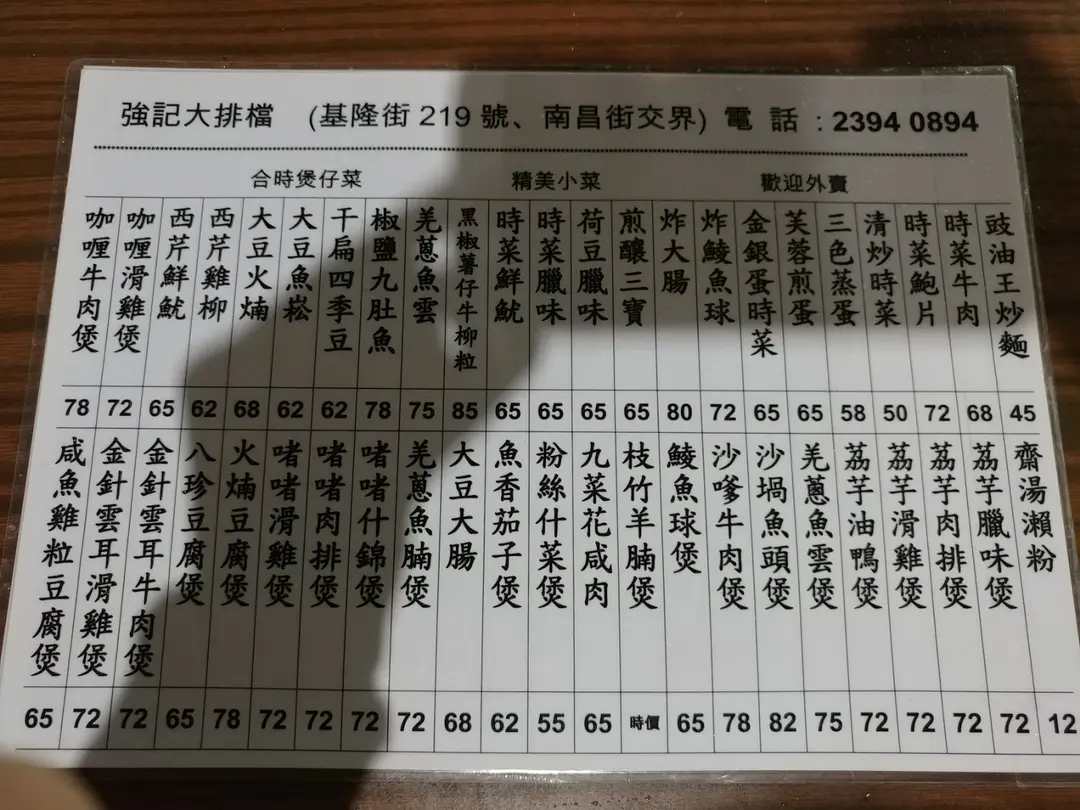 強記大排檔 (基隆街 219 號、南昌街交界) 電 話 : 2394 0894
合時煲仔菜 精美小菜 歡迎外賣
豉油王炒麵
時菜牛肉
時菜鮑片
清炒時菜
三色蒸蛋
芙蓉煎蛋
金銀蛋時菜
炸鯪魚球
炸大腸
煎釀三寶
荷豆臘味
時菜臘味
時菜鮮魷
黑椒薯仔牛柳粒
羌蔥魚雲
椒鹽九肚魚
干扁四季豆
大豆魚崧
大豆火腩
西芹雞柳
西芹鮮魷
咖喱滑雞煲
咖喱牛肉煲
78 72 65 62 68 62 62 78 75 85 65 65 65 65 80 72 65 65 58 50 72 68 45
齋湯瀨粉
荔芋臘味煲
荔芋肉排煲
荔芋滑雞煲
荔芋油鴨煲
羌蔥魚雲煲
沙堝魚頭煲
沙嗲牛肉煲
鯪魚球煲
枝竹羊腩煲
九菜花咸肉
粉絲什菜煲
魚香茄子煲
大豆大腸
羌蔥魚腩煲
啫啫什錦煲
啫啫肉排煲
啫啫滑雞煲
火腩豆腐煲
八珍豆腐煲
金針雲耳牛肉煲
金針雲耳滑雞煲
咸魚雞粒豆腐煲
65 72 72 65 78 72 72 72 72 68 62 55 65 時價 65 78 82 75 72 72 72 72 12